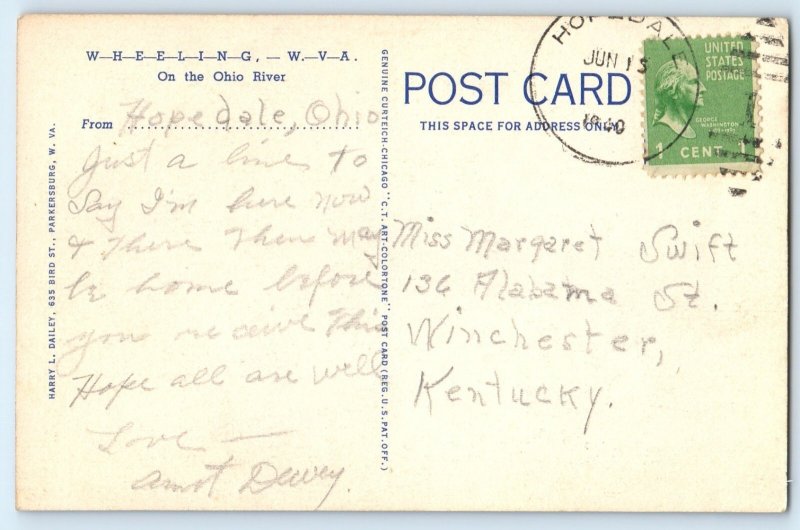 W-H-E-E-L-I-N-G, - W. V-A.
On the Ohio River
From Hopedale, Ohio
Just a line to
Say I'm here now
& There Then May
be home before
you receive This
Hope all are well
Love —
Dewey.
HARRY L. DAILEY, 635 BIRD ST., PARKERSBURG, W. VA.
GENUINE CURTEICH-CHICAGO "C.T. ART-COLORTONE" POST CARD (REG. U.S. PAT. OFF.)
POST CARD
THIS SPACE FOR ADDRESS ONLY
HOPEDALE
JUN 15
1940
UNITED
STATES
POSTAGE
GEORGE
WASHINGTON
1 CENT 1
Miss Margaret Swift
136 Alabama St.
Winchester,
Kentucky.